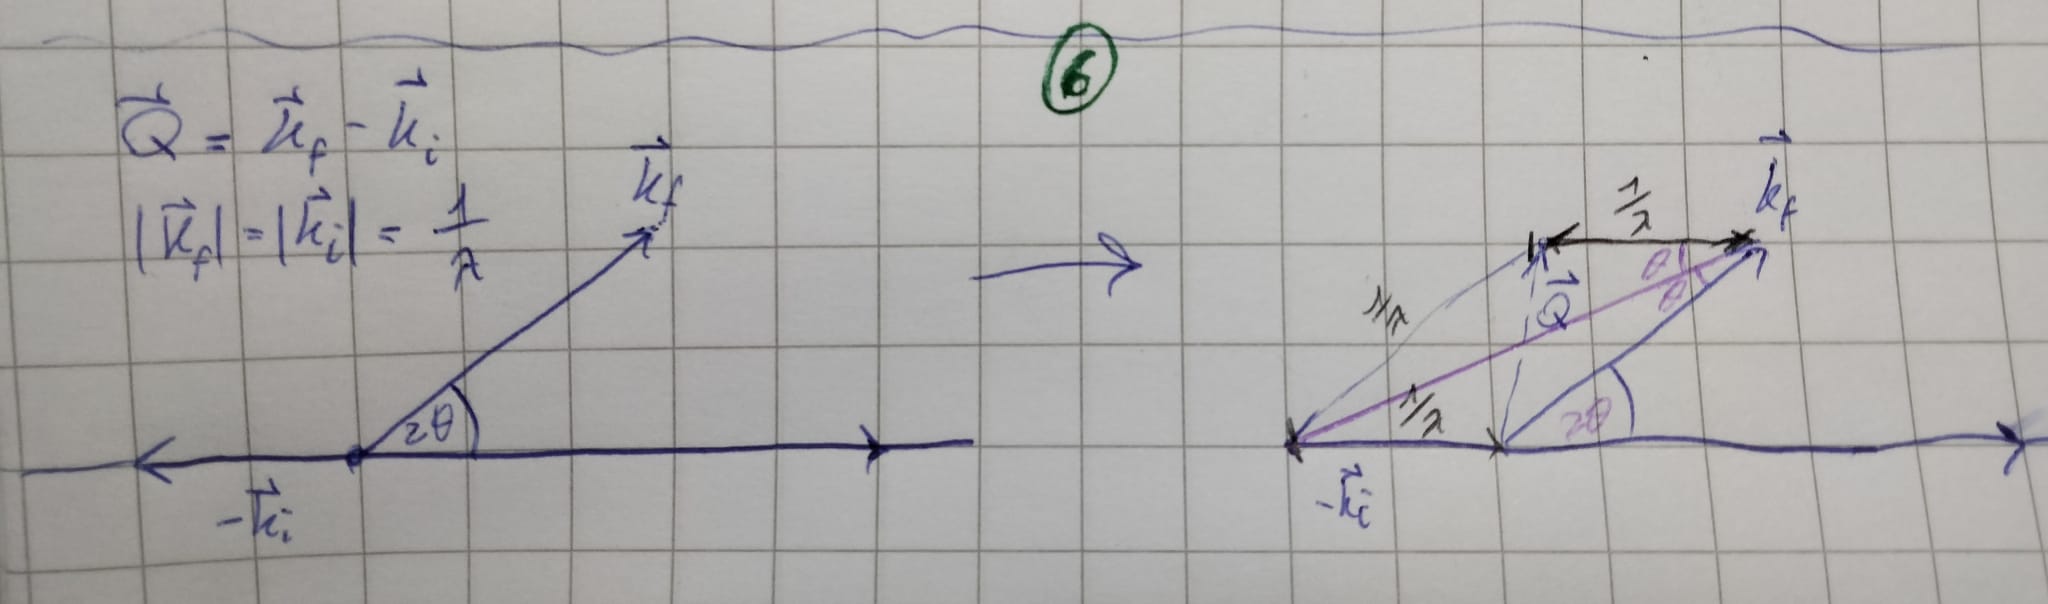 6
Q⃗ = k⃗f - k⃗i
|k⃗f| = |k⃗i| = 1/λ
k⃗f
2θ
-k⃗i
k⃗f
1/λ
θ
θ
1/λ
Q⃗
1/λ
2θ
-k⃗i